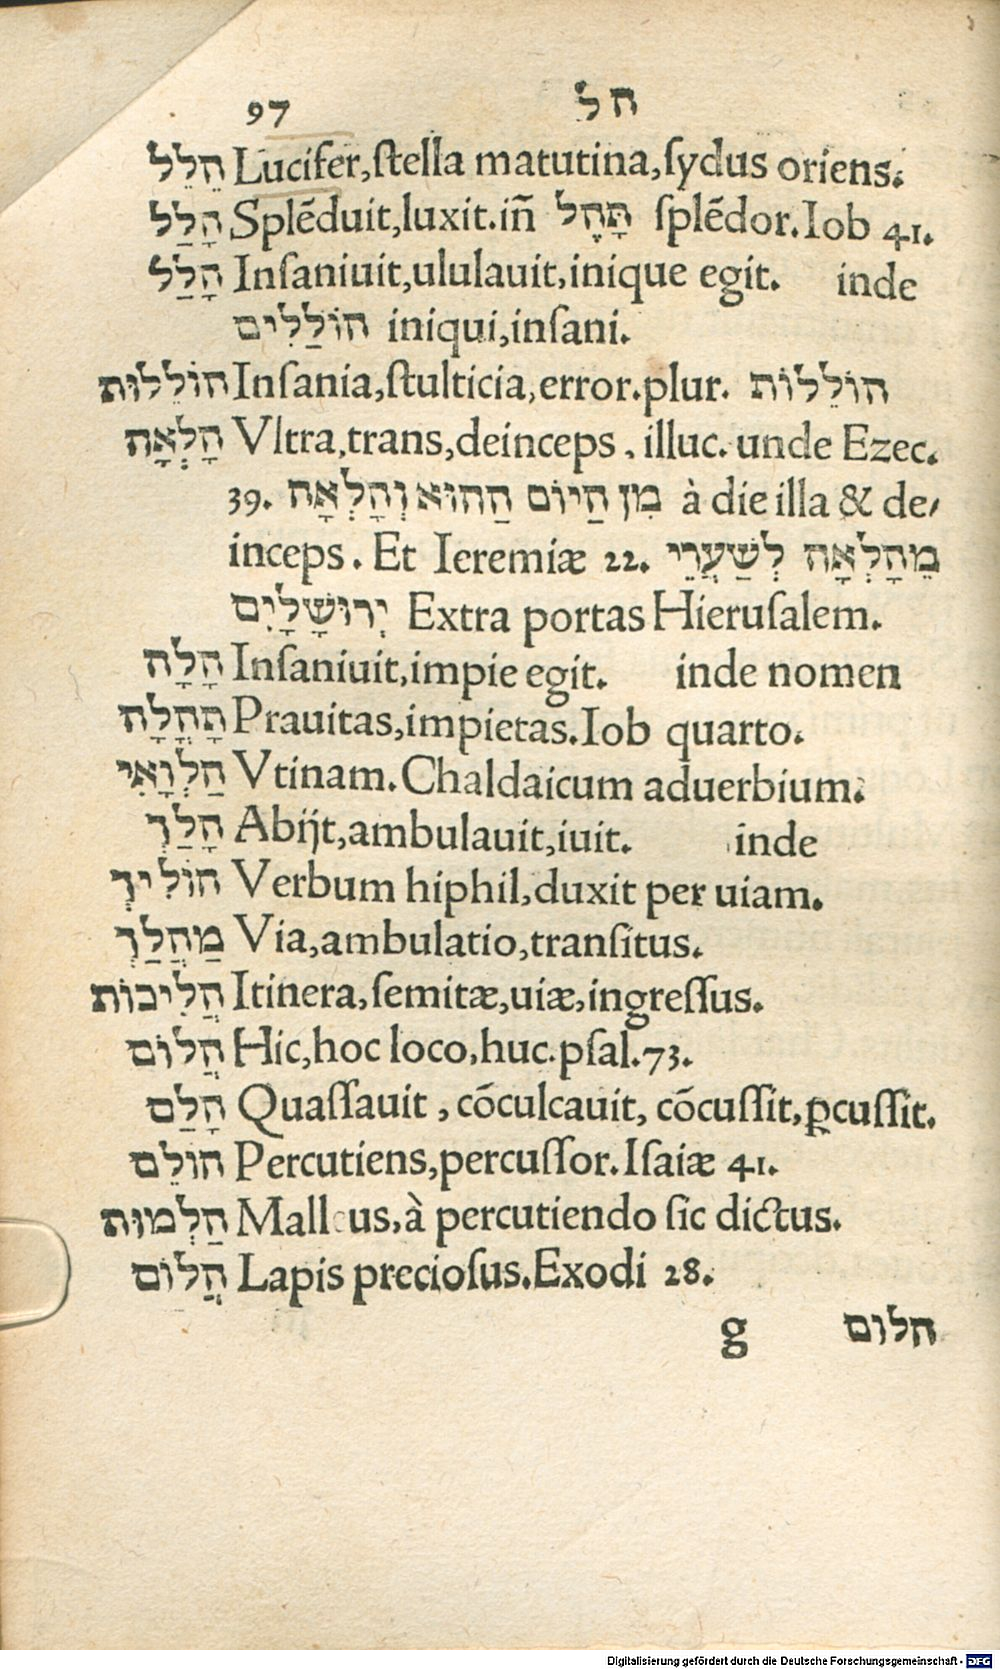 97 הל
הֵלֵל Lucifer,ſtella matutina,ſydus oriens.
הָלַל Splẽduit,luxit.iñ תָּהֶל ſplẽdor.Iob 41.
הָלַל Inſaniuit,ululauit,inique egit. inde
הוֹלַלִים iniqui,inſani.
הוֹלֵלוּת Inſania,ſtulticia,error.plur. הוֹלֵלוֹת
הָלְאָה Vltra,trans,deinceps. illuc. unde Ezec.
39. מִן הַיּוֹם הַהוּא וְהָלְאָה à die illa & de/
inceps. Et Ieremiæ 22. מֵהָלְאָה לְשַׁעֲרֵי
יְרוּשָׁלָיִם Extra portas Hieruſalem.
הָלָה Inſaniuit,impie egit. inde nomen
תָּהֳלָה Prauitas,impietas.Iob quarto.
הַלְוָאִי Vtinam.Chaldaicum aduerbium.
הָלַךְ Abijt,ambulauit,iuit. inde
הוֹלִיךְ Verbum hiphil,duxit per uiam.
מַהֲלַךְ Via,ambulatio,tranſitus.
הֲלִיכוֹת Itinera,ſemitæ,uiæ,ingreſſus.
הֲלוֹם Hic,hoc loco,huc.pſal.73.
הָלַם Quaſſauit, cõculcauit, cõcuſſit,ꝑcuſſit.
הוֹלֵם Percutiens,percuſſor.Iſaiæ 41.
הַלְמוּת Malleus,à percutiendo ſic dictus.
הֲלוֹם Lapis precioſus.Exodi 28.
g הלום
Digitalisierung gefördert durch die Deutsche Forschungsgemeinschaft - DFG